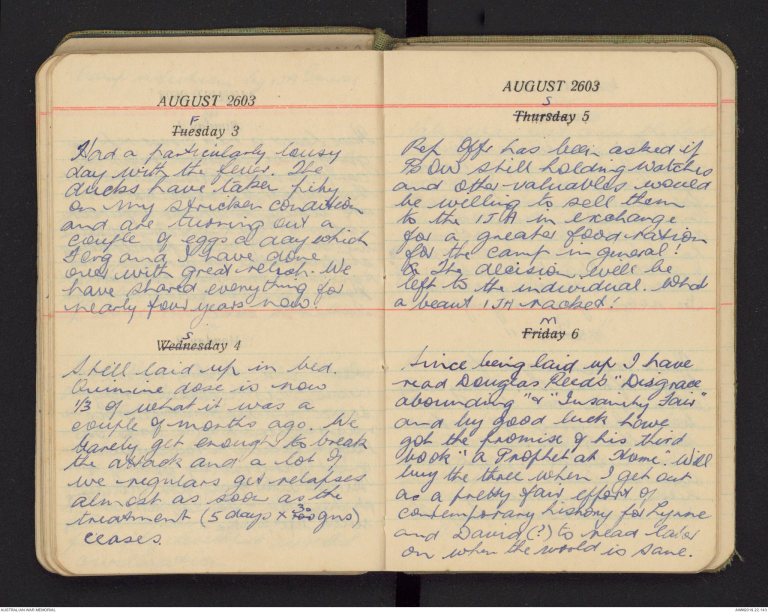 AUGUST 2603
F
Tuesday 3
Had a particularly lousy
day with the fever. The
ducks have taken pity
on my stricken condition
and are turning out a
couple of eggs a day which
Ferg and I have done
over with great relish. We
have shared everything for
nearly four years now.
S
Wednesday 4
Still laid up in bed.
Quinine dose is now
1/3 of what it was a
couple of months ago. We
barely get enough to break
the attack and a lot of
we regulars get relapses
almost as soon as the
treatment (5 days x 30 gns)
ceases.
AUGUST 2603
S
Thursday 5
Rep Offr has been asked if
POW still holding watches
and other valuables would
be willing to sell them
to the IJA in exchange
for a greater food ration
for the camp in general!
The decision will be
left to the individual. What
a beaut IJA racket!
M
Friday 6
Since being laid up I have
read Douglas Reed's "Disgrace
abounding" & "Insanity Fair"
and by good luck have
got the promise of his third
book "A Prophet at Home". Will
buy the three when I get out
as a pretty fair effort of
contemporary history for Lynne
and David (?) to read later
on when the world is sane.
AUSTRALIAN WAR MEMORIAL